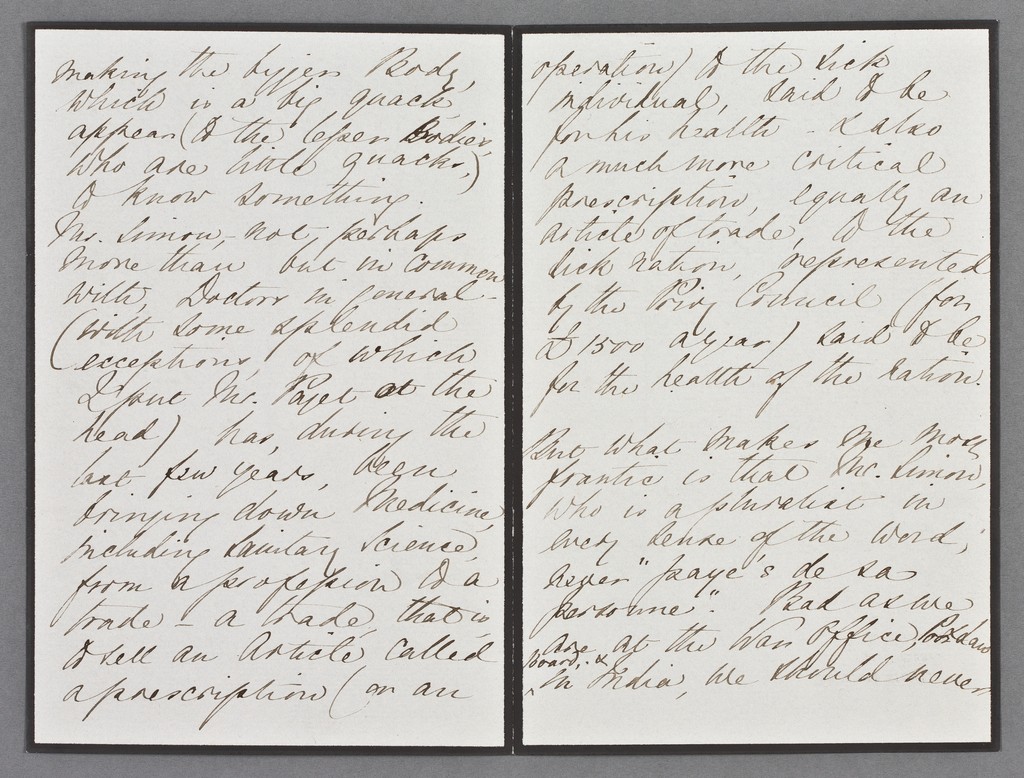 making the bigger Body,
which is a big quack,
appear (to the lesser Bodies,
who are little quacks,)
to know something.
Mr. Simon, not, perhaps
more than but in common
with, Doctors in general -
(with some splendid
exceptions, of which
I put Mr. Paget at the
head) has, during the
last few years, been
bringing down Medicine,
including Sanitary Science,
from a profession to a
trade - a trade, that is,
to sell an Article, called
a prescription (or an
operation) to the sick
individual, said to be
for his health - & also
a much more critical
prescription, equally an
article of trade, to the
sick nation, represented
by the Privy Council (for
£1500 a year) said to be
for the health of the nation.
But what makes me most
frantic is that Mr. Simon,
who is a pluralist in
every sense of the word,
never "paye's de sa
personne". Bad as we
are at the War Office, Poor Law
Board, &
in India, we should never